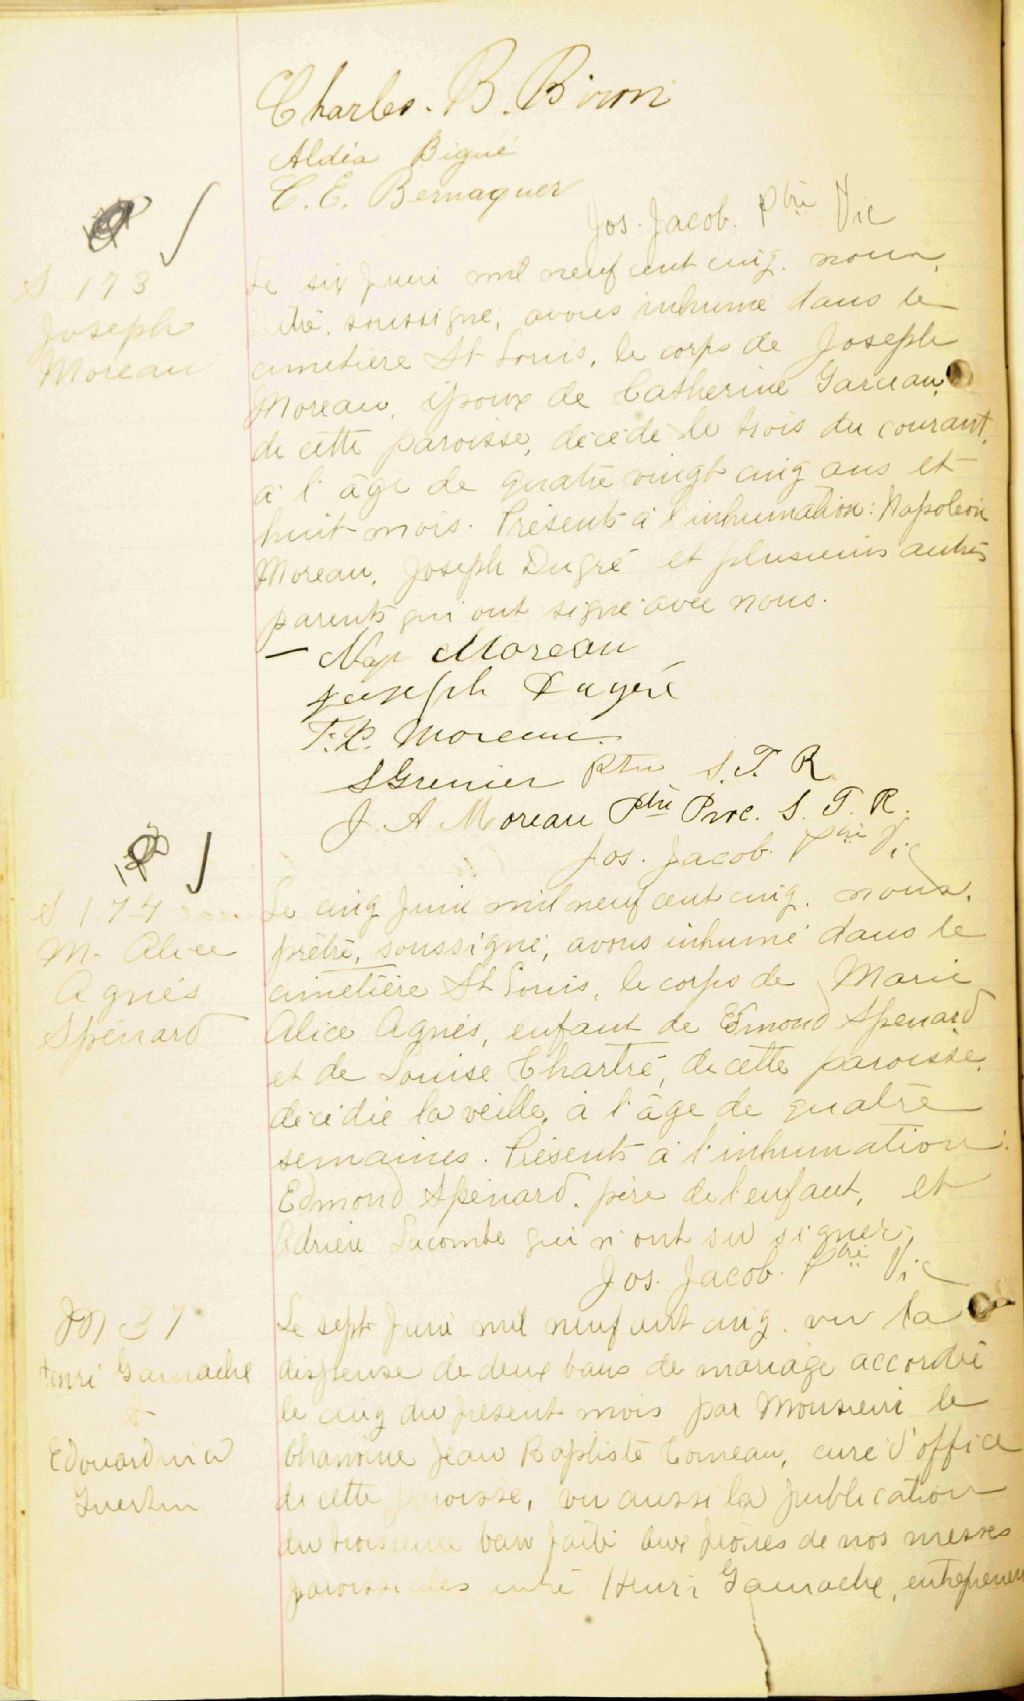 Charles. B. Biron
Aldéa Bigué
C. E. Bernaquer
Jos. Jacob. Ptre Vic
S 173
Joseph
Moreau
Le six Juin mil neuf cent cinq. nous,
prêtre, soussigné, avons inhumé dans le
cimetière St Louis, le corps de Joseph
Moreau, époux de Catherine Garceau,
de cette paroisse, décédé le trois du courant,
à l'âge de quatre vingt cinq ans et
huit mois. Présents à l'inhumation: Napoléon
Moreau, Joseph Dugré et plusieurs autres
parents qui ont signé avec nous.
Nap Moreau
Joseph Dugré
F. X. Moreau
S Grenier Ptre S. T. R.
J. A Moreau Ptre Proc. S. T. R.
Jos. Jacob. Ptre Vic
S 174
M. Alice
Agnès
Spénard
Le cinq Juin mil neuf cent cinq. nous,
prêtre, soussigné, avons inhumé dans le
cimetière St Louis, le corps de Marie
Alice Agnès, enfant de Edmond Spénard
et de Louise Chartré, de cette paroisse,
décédée la veille, à l'âge de quatre
semaines. Présents à l'inhumation:
Edmond Spénard, père de l'enfant, et
Lacombe qui n'ont su signer.
Jos. Jacob. Ptre Vic
M 37
Henri Gamache
&
Edouardina
Guertin
Le sept Juin mil neuf cent cinq. vu la
dispense de deux bans de mariage accordée
le cinq du présent mois par Monsieur le
Chanoine Jean Baptiste Comeau, curé d'office
de cette paroisse, vu aussi la publication
du troisième ban faite aux prônes de nos messes
paroissiales entre Henri Gamache, entrepreneur